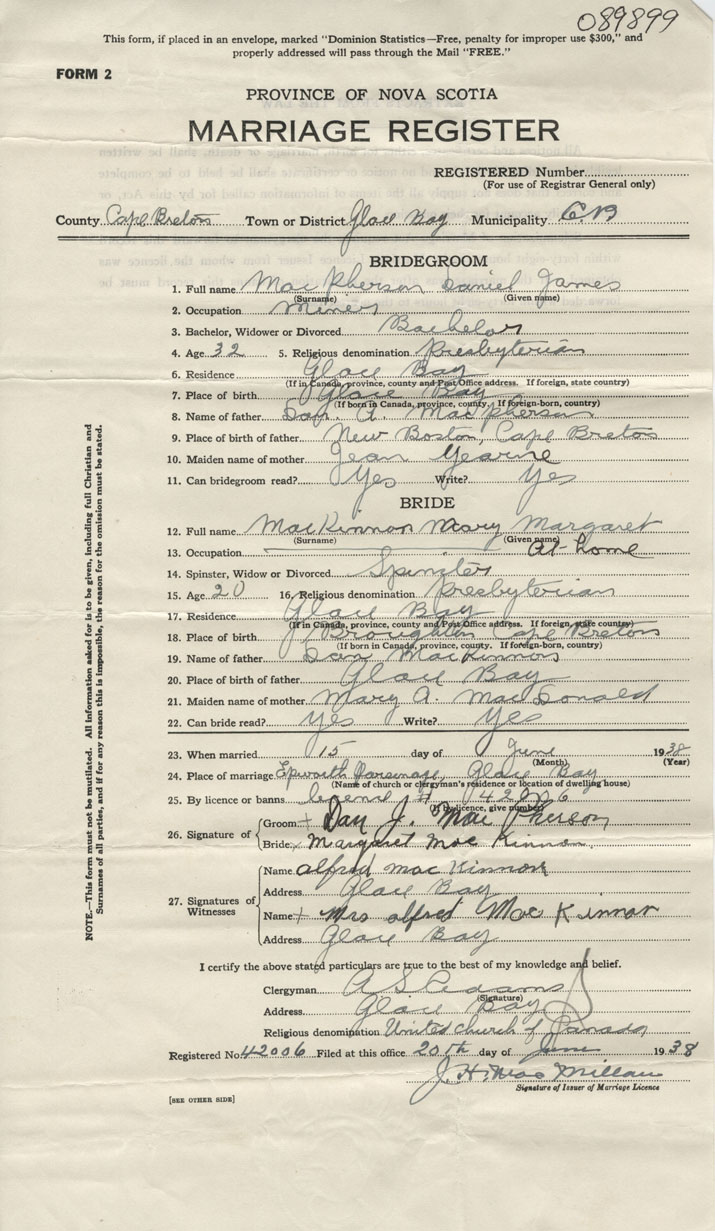 089899
This form, if placed in an envelope, marked "Dominion Statistics—Free, penalty for improper use $300," and
properly addressed will pass through the Mail "FREE."
FORM 2
PROVINCE OF NOVA SCOTIA
MARRIAGE REGISTER
REGISTERED Number
(For use of Registrar General only)
County Cape Breton Town or District Glace Bay Municipality C.B
BRIDEGROOM
1. Full name MacPherson Daniel James
(Surname) (Given name)
2. Occupation Miner
3. Bachelor, Widower or Divorced Bachelor
4. Age 32 5. Religious denomination Presbyterian
6. Residence Glace Bay
(If in Canada, province, county and Post Office address. If foreign, state country)
7. Place of birth Glace Bay
(If born in Canada, province, county. If foreign-born, country)
8. Name of father Dan. A. MacPherson
9. Place of birth of father New Boston, Cape Breton
10. Maiden name of mother Jean Yearne
11. Can bridegroom read? Yes Write? Yes
BRIDE
12. Full name MacKinnon Mary Margaret
(Surname) (Given name)
13. Occupation At-home
14. Spinster, Widow or Divorced Spinster
15. Age 20 16. Religious denomination Presbyterian
17. Residence Glace Bay
(If in Canada, province, county and Post Office address. If foreign, state country)
18. Place of birth Broughton Cape Breton
(If born in Canada, province, county. If foreign-born, country)
19. Name of father Dan MacKinnon
20. Place of birth of father Glace Bay
21. Maiden name of mother Mary A. MacDonald
22. Can bride read? Yes Write? Yes
23. When married 15 day of June 1938
(Month) (Year)
24. Place of marriage Epworth Parsonage, Glace Bay
(Name of church or clergyman's residence or location of dwelling house)
25. By licence or banns 42006
(If by licence, give number)
26. Signature of
Groom + Dan J. MacPherson
Bride x Margaret MacKinnon
27. Signatures of Witnesses
Name alfred mac Kinnon
Address Glace Bay
Name + Mrs alfred MacKinnon
Address Glace Bay
I certify the above stated particulars are true to the best of my knowledge and belief.
Clergyman A S Adams
(Signature)
Address Glace Bay
Religious denomination United church of Canada
Registered No. 42006 Filed at this office 20th day of June 1938
J. H. MacMillan
Signature of Issuer of Marriage Licence
[SEE OTHER SIDE]
NOTE.—This form must not be mutilated. All information asked for is to be given, including full Christian and
Surnames of all parties, and if for any reason this is impossible, the reason for the omission must be stated.